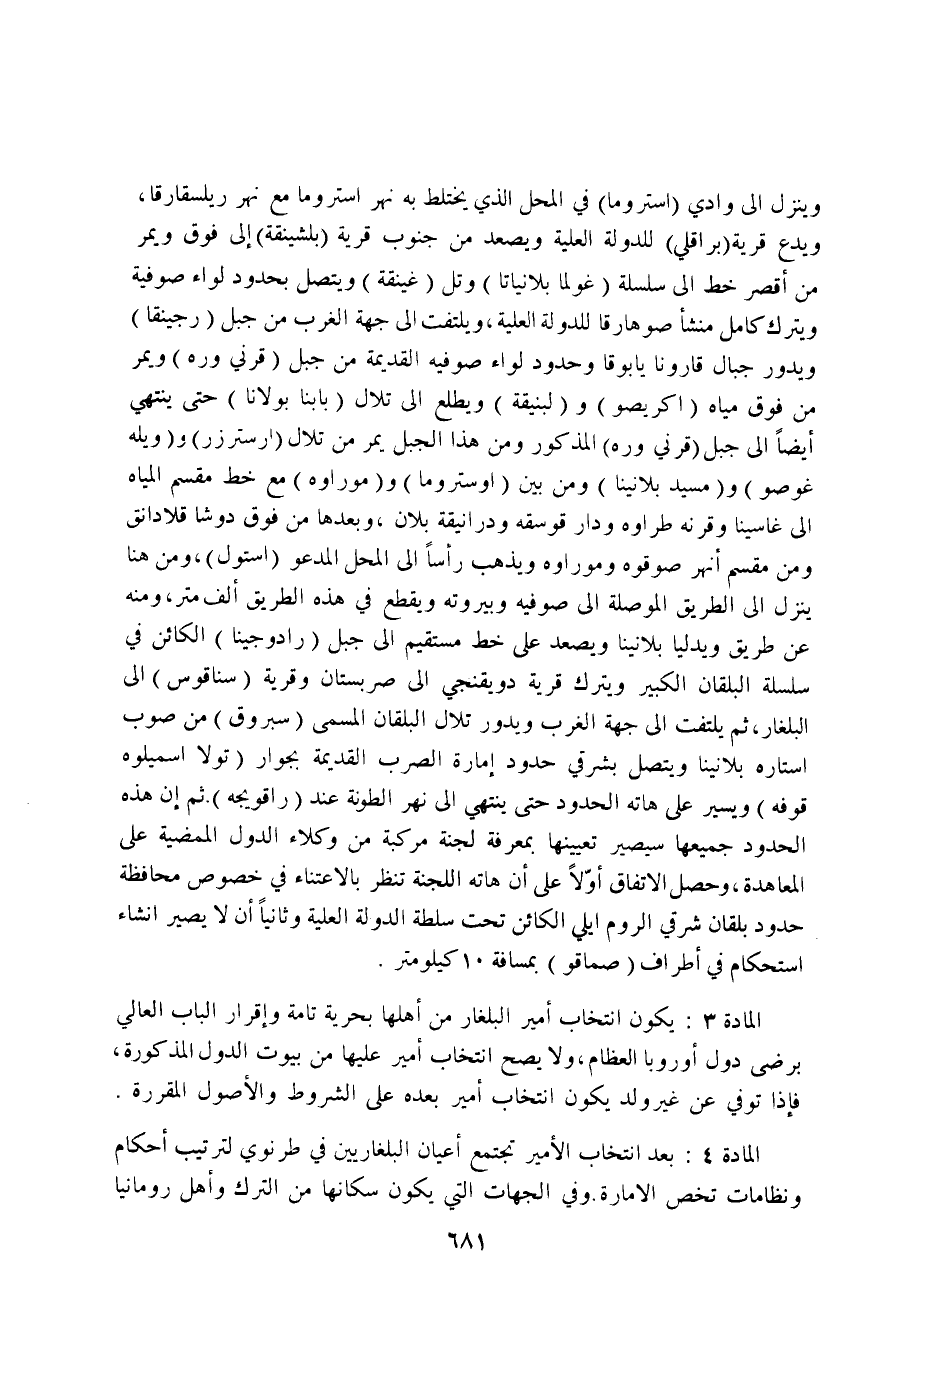 وينزل الى وادي (استروما) في المحل الذي يختلط به نهر استروما مع نهر ريلسقارقا،
ويدع قرية(براقلي) للدولة العلية ويصعد من جنوب قرية (بلشينقة)إلى فوق ويمر
من أقصر خط الى سلسلة ( غولما بلانياتا ) وتل ( غينقة ) ويتصل بحدود لواء صوفية
ويترك كامل منشأ صوهارقا للدولة العلية،ويلتفت الى جهة الغرب من جبل ( رجينقا )
ويدور جبال قارونا يابوقا وحدود لواء صوفيه القديمة من جبل ( قرني وره ) ويمر
من فوق مياه ( اكريصو ) و ( لبنيقة ) ويطلع الى تلال ( بابنا بولانا ) حتى ينتهي
أيضاً الى جبل(قرني وره) المذكور ومن هذا الجبل يمر من تلال (ارسترزر) و( ويله
غوصو ) و( مسيد بلانينا ) ومن بين ( اوستروما ) و( موراوه ) مع خط مقسم المياه
الى غاسينا وقرنه طراوه ودار قوسقه ودرانيقة بلان ،وبعدها من فوق دوشا قلادانق
ومن مقسم أنهر صوقوه وموراوه ويذهب رأساً الى المحل المدعو (استول)،ومن هنا
ينزل الى الطريق الموصلة الى صوفيه وبيروته ويقطع في هذه الطريق ألف متر،ومنه
عن طريق ويدليا بلانينا ويصعد على خط مستقيم الى جبل ( رادوجينا ) الكائن في
سلسلة البلقان الكبير ويترك قرية دويقنجي الى صربستان وقرية ( سناقوس ) الى
البلغار،ثم يلتفت الى جهة الغرب ويدور تلال البلقان المسمى ( سبروق ) من صوب
استاره بلانينا ويتصل بشرقي حدود إمارة الصرب القديمة بجوار ( تولا اسميلوه
قوفه ) ويسير على هاته الحدود حتى ينتهي الى نهر الطونة عند ( راقويجه ).ثم إن هذه
الحدود جميعها سيصير تعيينها بمعرفة لجنة مركبة من وكلاء الدول الممضية على
المعاهدة،وحصل الاتفاق أوّلاً على أن هاته اللجنة تنظر بالاعتناء في خصوص محافظة
حدود بلقان شرقي الروم ايلي الكائن تحت سلطة الدولة العلية وثانياً أن لا يصير انشاء
استحكام في أطراف ( صماقو ) بمسافة ١٠ كيلومتر .
المادة ٣ : يكون انتخاب أمير البلغار من أهلها بحرية تامة وإقرار الباب العالي
برضى دول أوروبا العظام،ولا يصح انتخاب أمير عليها من بيوت الدول المذكورة،
فإذا توفي عن غير ولد يكون انتخاب أمير بعده على الشروط والأصول المقررة .
المادة ٤ : بعد انتخاب الأمير تجتمع أعيان البلغاريين في طرنوي لترتيب أحكام
ونظامات تخص الامارة.وفي الجهات التي يكون سكانها من الترك وأهل رومانيا
٦٨١